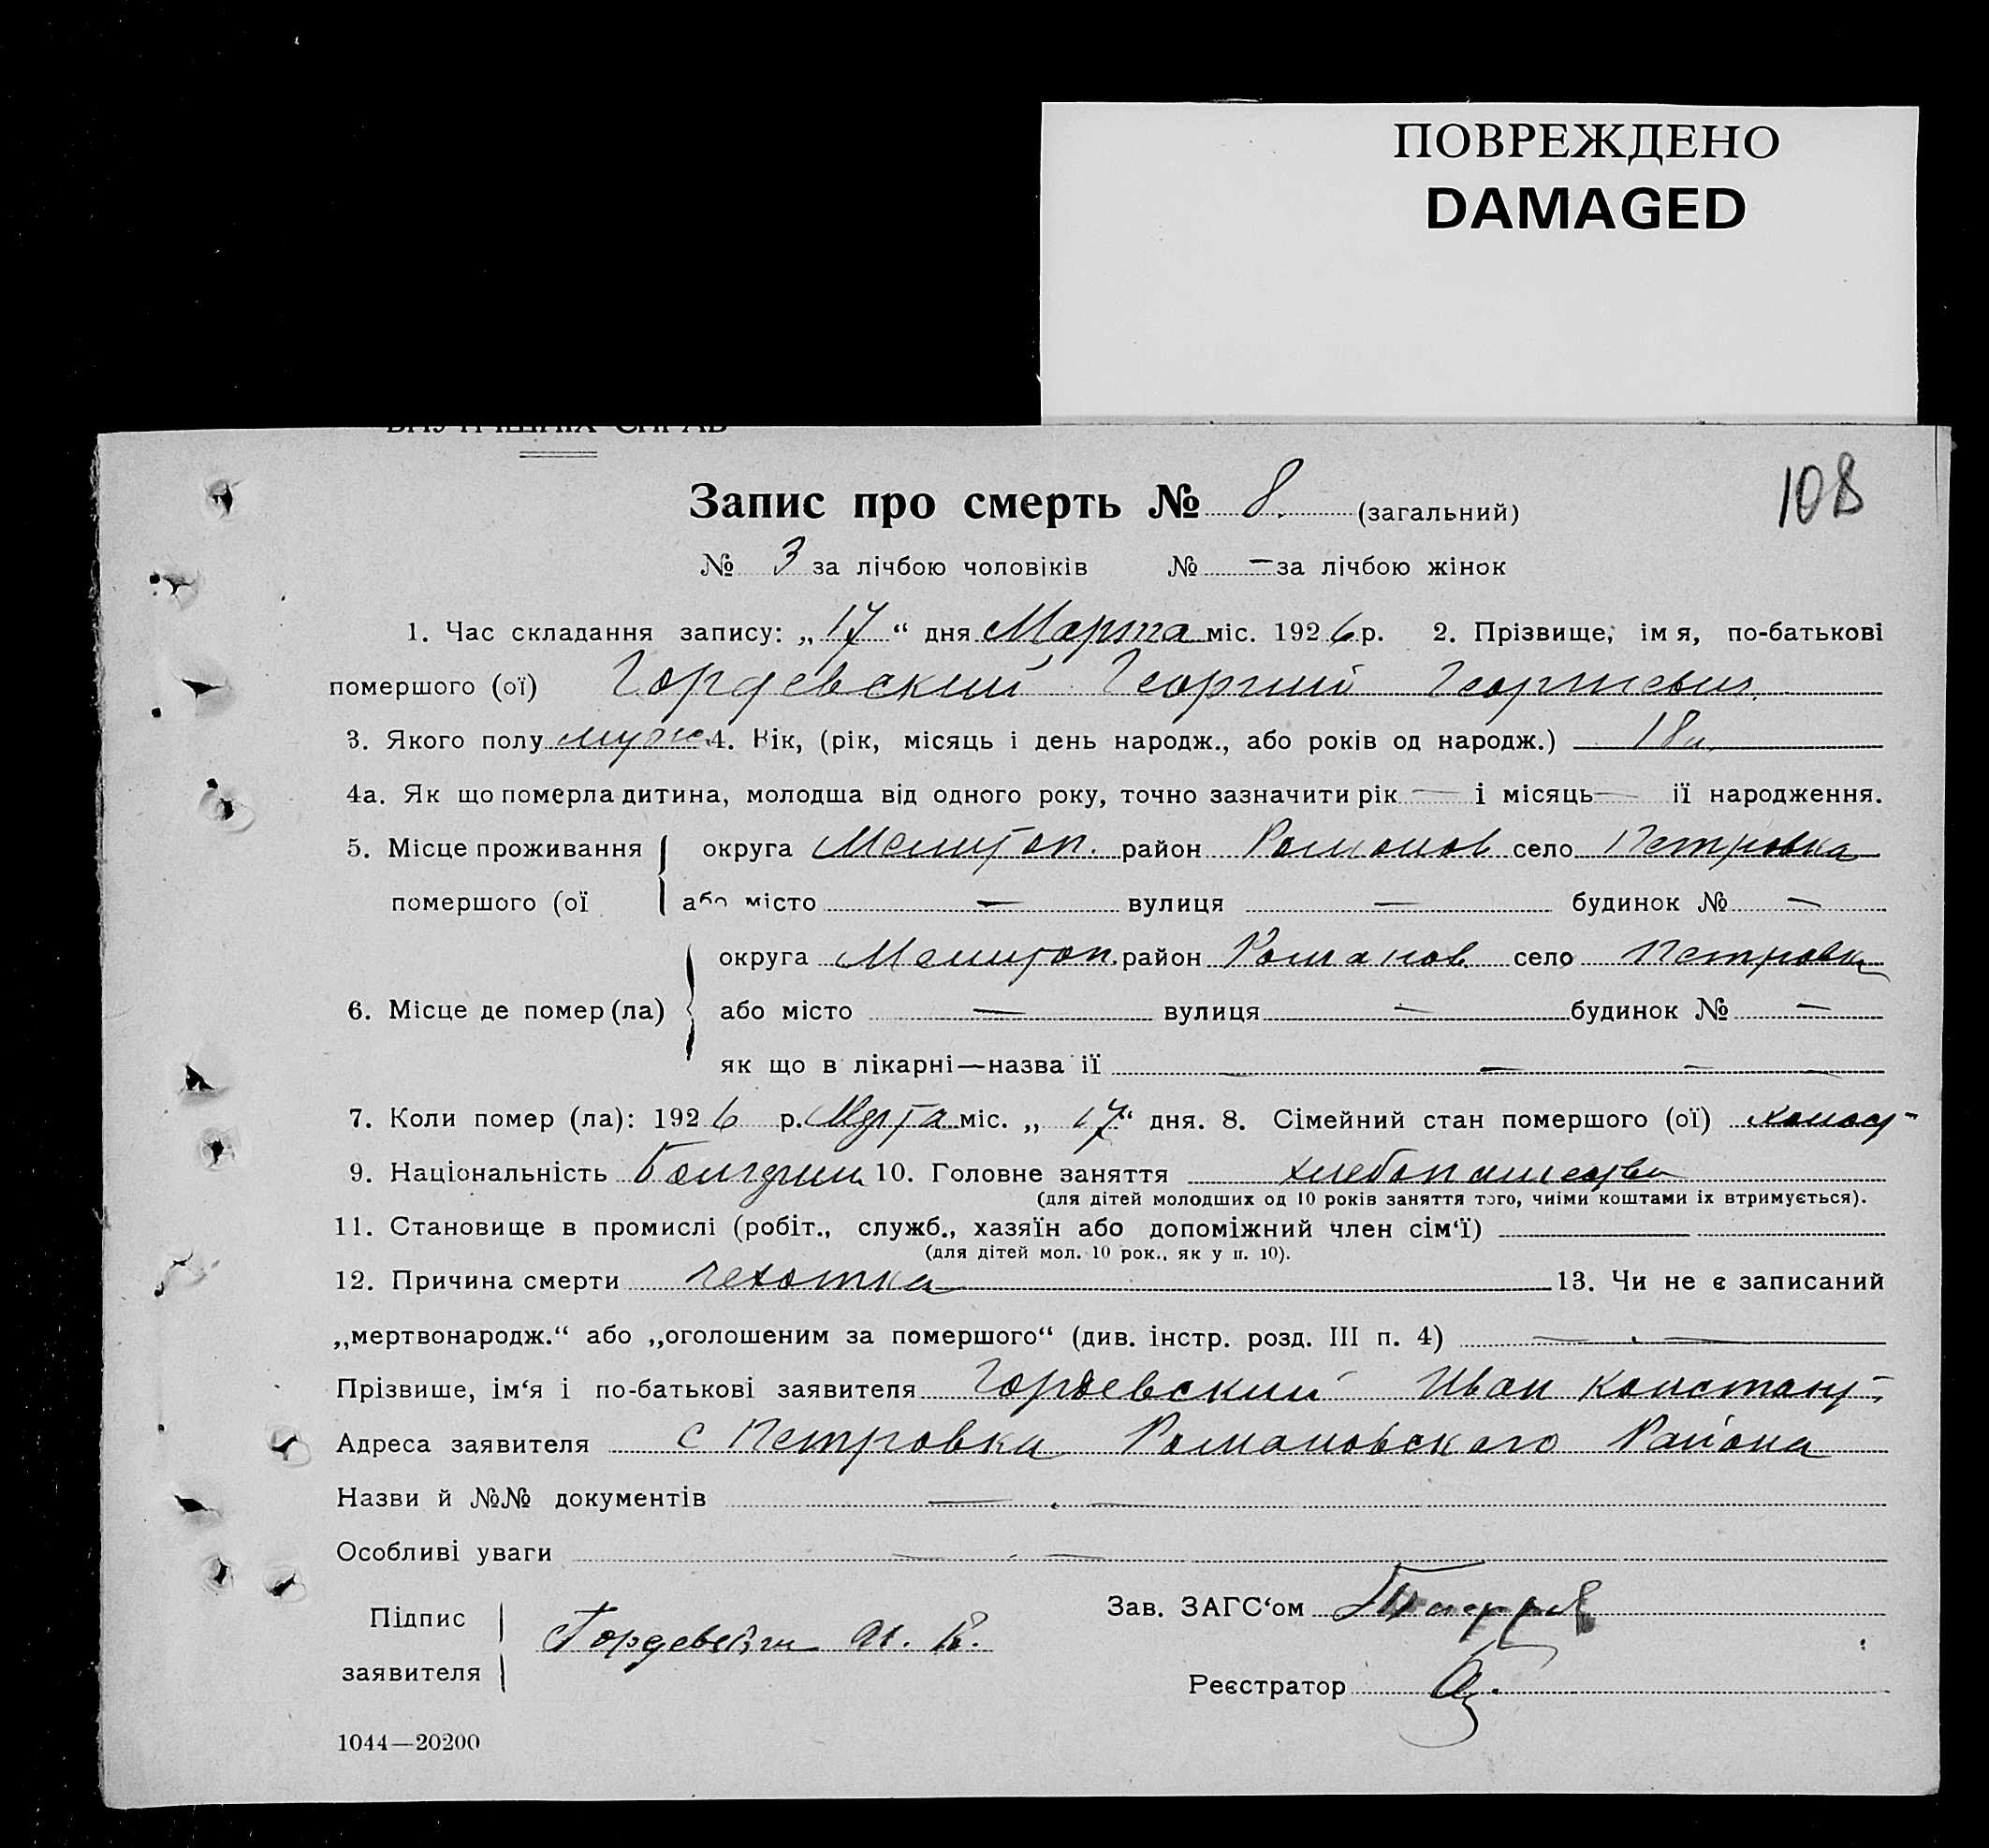 ПОВРЕЖДЕНО
DAMAGED
ВНУТРІШНІХ СПРАВ
108
Запис про смерть № 8. (загальний)
№ 3 за лічбою чоловіків № — за лічбою жінок
1. Час складання запису: „17“ дня Марта міс. 1926 р. 2. Прізвище, імя, по-батькові
помершого (ої) Гордевский Георгий Георгиевич.
3. Якого полу муж. 4. Вік, (рік, місяць і день народж., або років од народж.) 18 л.
4а. Як що померла дитина, молодша від одного року, точно зазначити рік — і місяць — ії народження.
5. Місце проживання округа Мелитоп. район Романов село Петровка
помершого (ої або місто — вулиця — будинок № —
округа Мелитоп. район Романов село Петровка
6. Місце де помер (ла) або місто — вулиця — будинок № —
як що в лікарні—назва ії — — — —
7. Коли помер (ла): 1926 р. Марта міс. „17“ дня. 8. Сімейний стан помершого (ої) холост-
9. Національність Болгарин 10. Головне заняття хлебопашество
(для дітей молодших од 10 років заняття того, чиїми коштами іх втримується).
11. Становище в промислі (робіт., служб., хазяїн або допоміжний член сім‘ї) —
(для дітей мол. 10 рок., як у п. 10).
12. Причина смерти чехотка 13. Чи не є записаний
„мертвонародж.“ або „оголошеним за помершого“ (див. інстр. розд. III п. 4) — . —
Прізвише, ім‘я і по-батькові заявителя Гордевский Иван Констант-
Адреса заявителя с Петровка Романовского Района
Назви й №№ документів — . —
Особливі уваги — . —
Підпис заявителя Гордевский И. К.
Зав. ЗАГС‘ом
Реєстратор
1044—20200